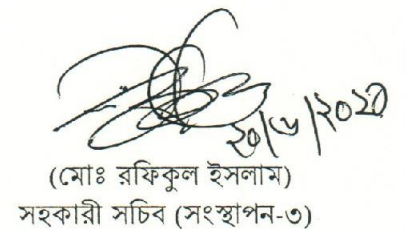 ২০/৬/২০২০
(মোঃ রফিকুল ইসলাম)
সহকারী সচিব (সংস্থাপন-৩)